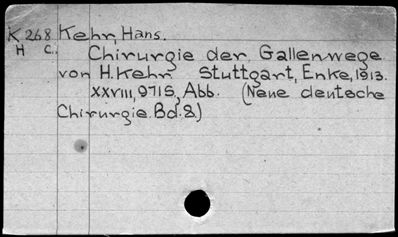 K 268 Kehr, Hans.
H C. Chirurgie der Gallenwege
von H. Kehr Stuttgart, Enke, 1913.
XXVIII, 971 S., Abb. (Neue deutsche
Chirurgie. Bd. 8.)